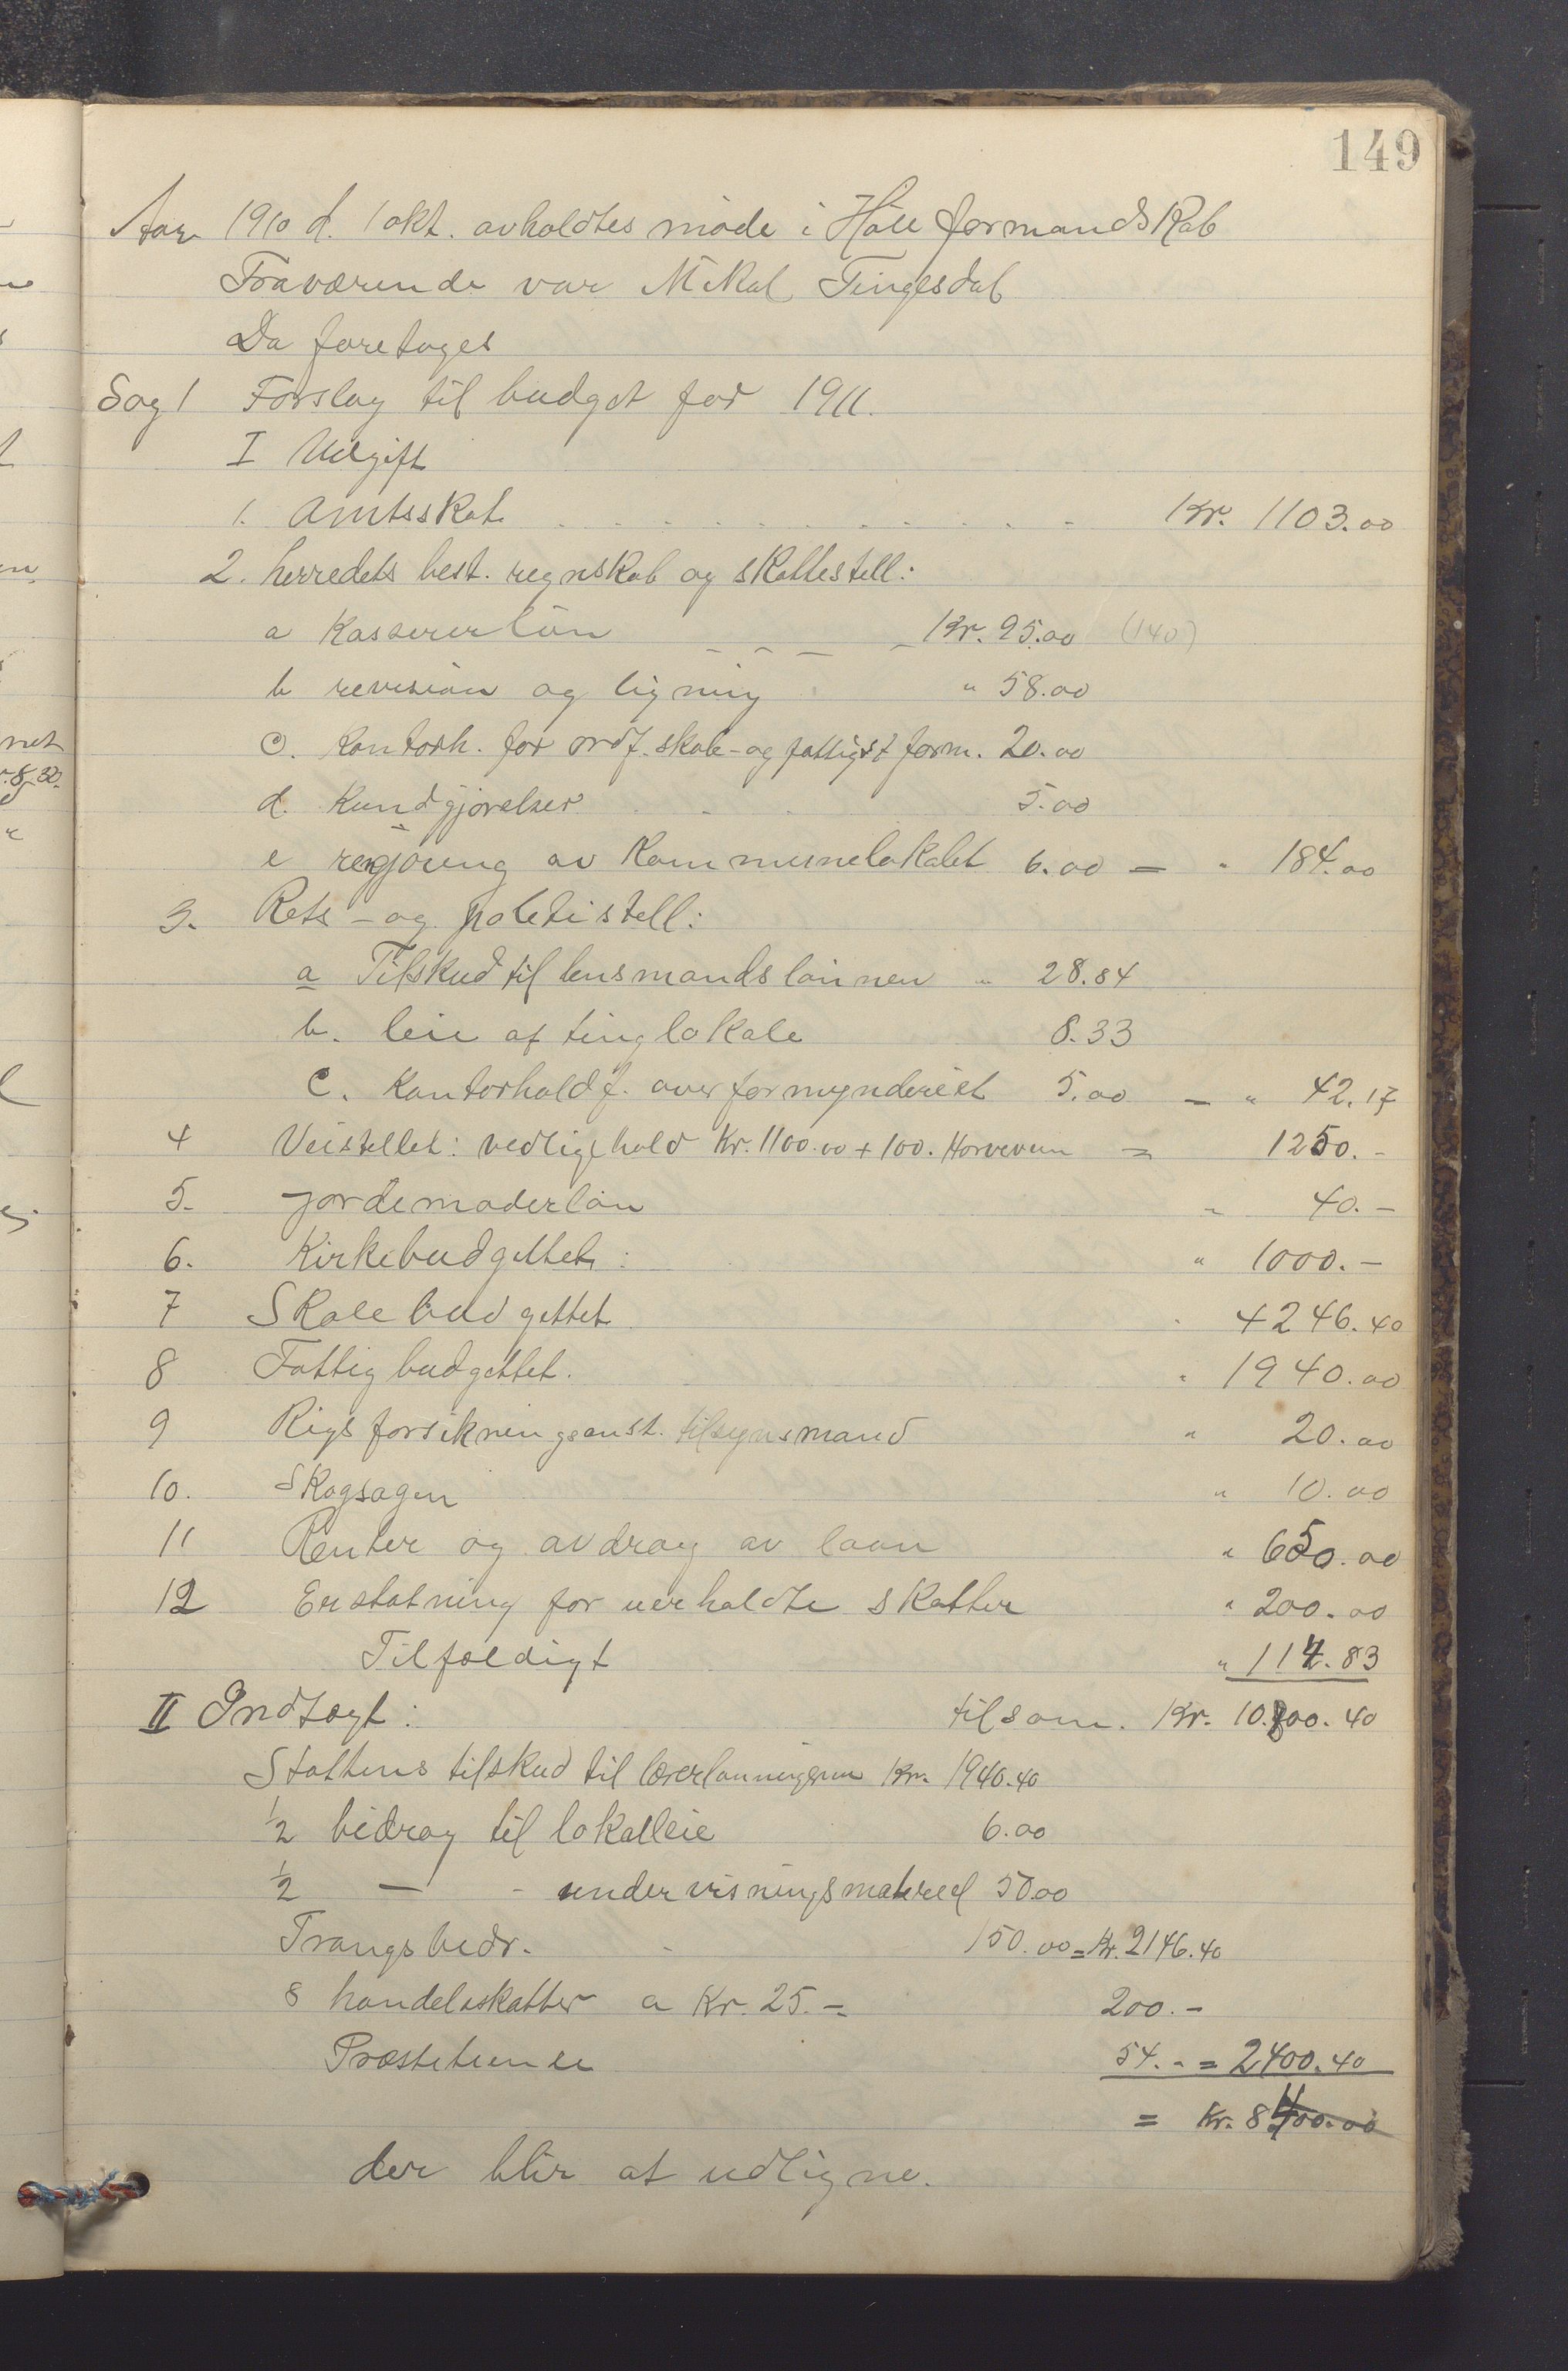 149
Aar 1910 d. 1 okt. avholdtes møde i Høle formandskab
Fraværende var Mikal Tingesdal
Da foretoges
Sag 1 Forslag til budget for 1911.
I Udgift
1. Amtsskat Kr. 1103.00
2. herredets best. regnskab og skattestell:
a Kassererløn Kr. 95.00 (140)
b revision og ligning " 58.00
c. Kontorh. for ordf. skole- og fattigst form. 20.00
d. Kundgjørelser 5.00
e rengjøring av Kommunelokalet 6.00 — " 184.00
3. Rets- og politistell:
a Tilskud til lensmandslønnen " 28.84
b. leie af tinglokale 8.33
c. Kontorhold f. overformynderiet 5.00 — " 42.17
4 Veistellet: vedligehold Kr. 1100.00 + 100. = 1250.-
5. Jordemoderløn " 40.—
6. Kirkebudgettet: " 1000.—
7 Skolebudgettet " 4246.40
8 Fattigbudgettet. " 1940.00
9 Rigsforsikringsanst. tilsynsmand " 20.00
10. Skogsagen " 10.00
11 Renter og avdrag av laan " 650.00
12 Erstatning for uerholdte skatter " 200.00
Tilfældigt " 114.83
II Indtægt: tilsam. Kr. 10.800.40
Stattens tilskud til lærerlønningerne Kr. 1940.40
1/2 bidrag til lokalleie 6.00
1/2 — - undervisningsmateriel 50.00
Trangsbidr. 150.00 = Kr. 2146.40
8 handelsskatter a Kr. 25.— 200.-
Præstetiende 54.- = 2400.40
= Kr. 8400.00
der blir at udligne.